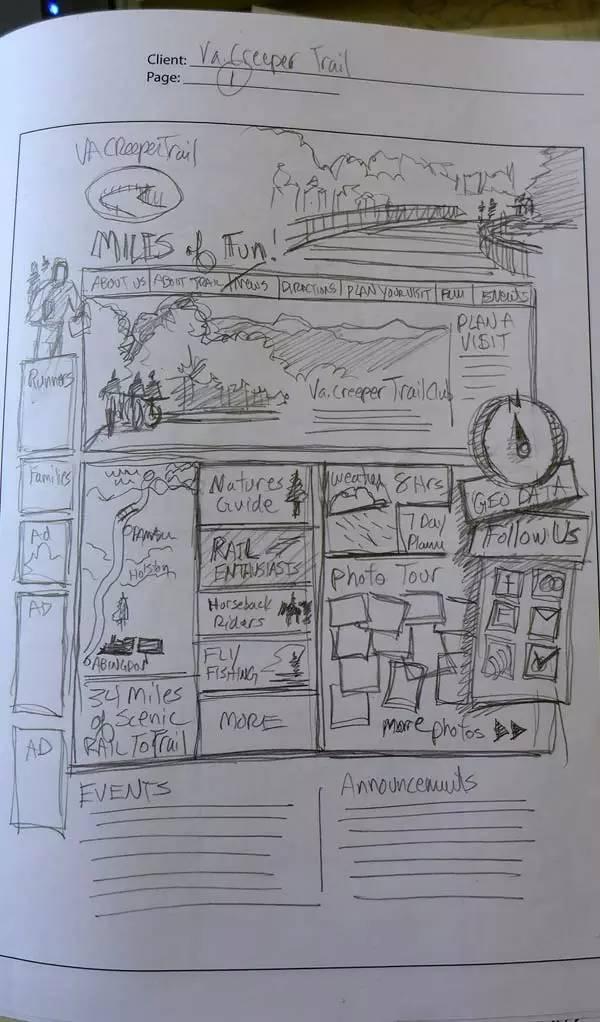 Client: Va. Creeper Trail
Page: 1
VA CReeper TRail
MILES of Fun!
ABOUT US
ABOUT TRAIL
NEWS
DIRECTIONS
PLAN YOUR VISIT
FUN
ENEWS
PLAN A
VISIT
Va. Creeper Trail Club
N
Runners
Families
Ad
AD
AD
Holston
ABINGDON
34 Miles
of Scenic
RAIL To Trail
Natures
Guide
RAIL
ENTHUSIASTS
Horseback
Riders
FLY
FISHING
MORE
Weather
8 Hrs
7 Day
Photo Tour
more photos
GEO DATA
Follow Us
f
EVENTS
Announcements